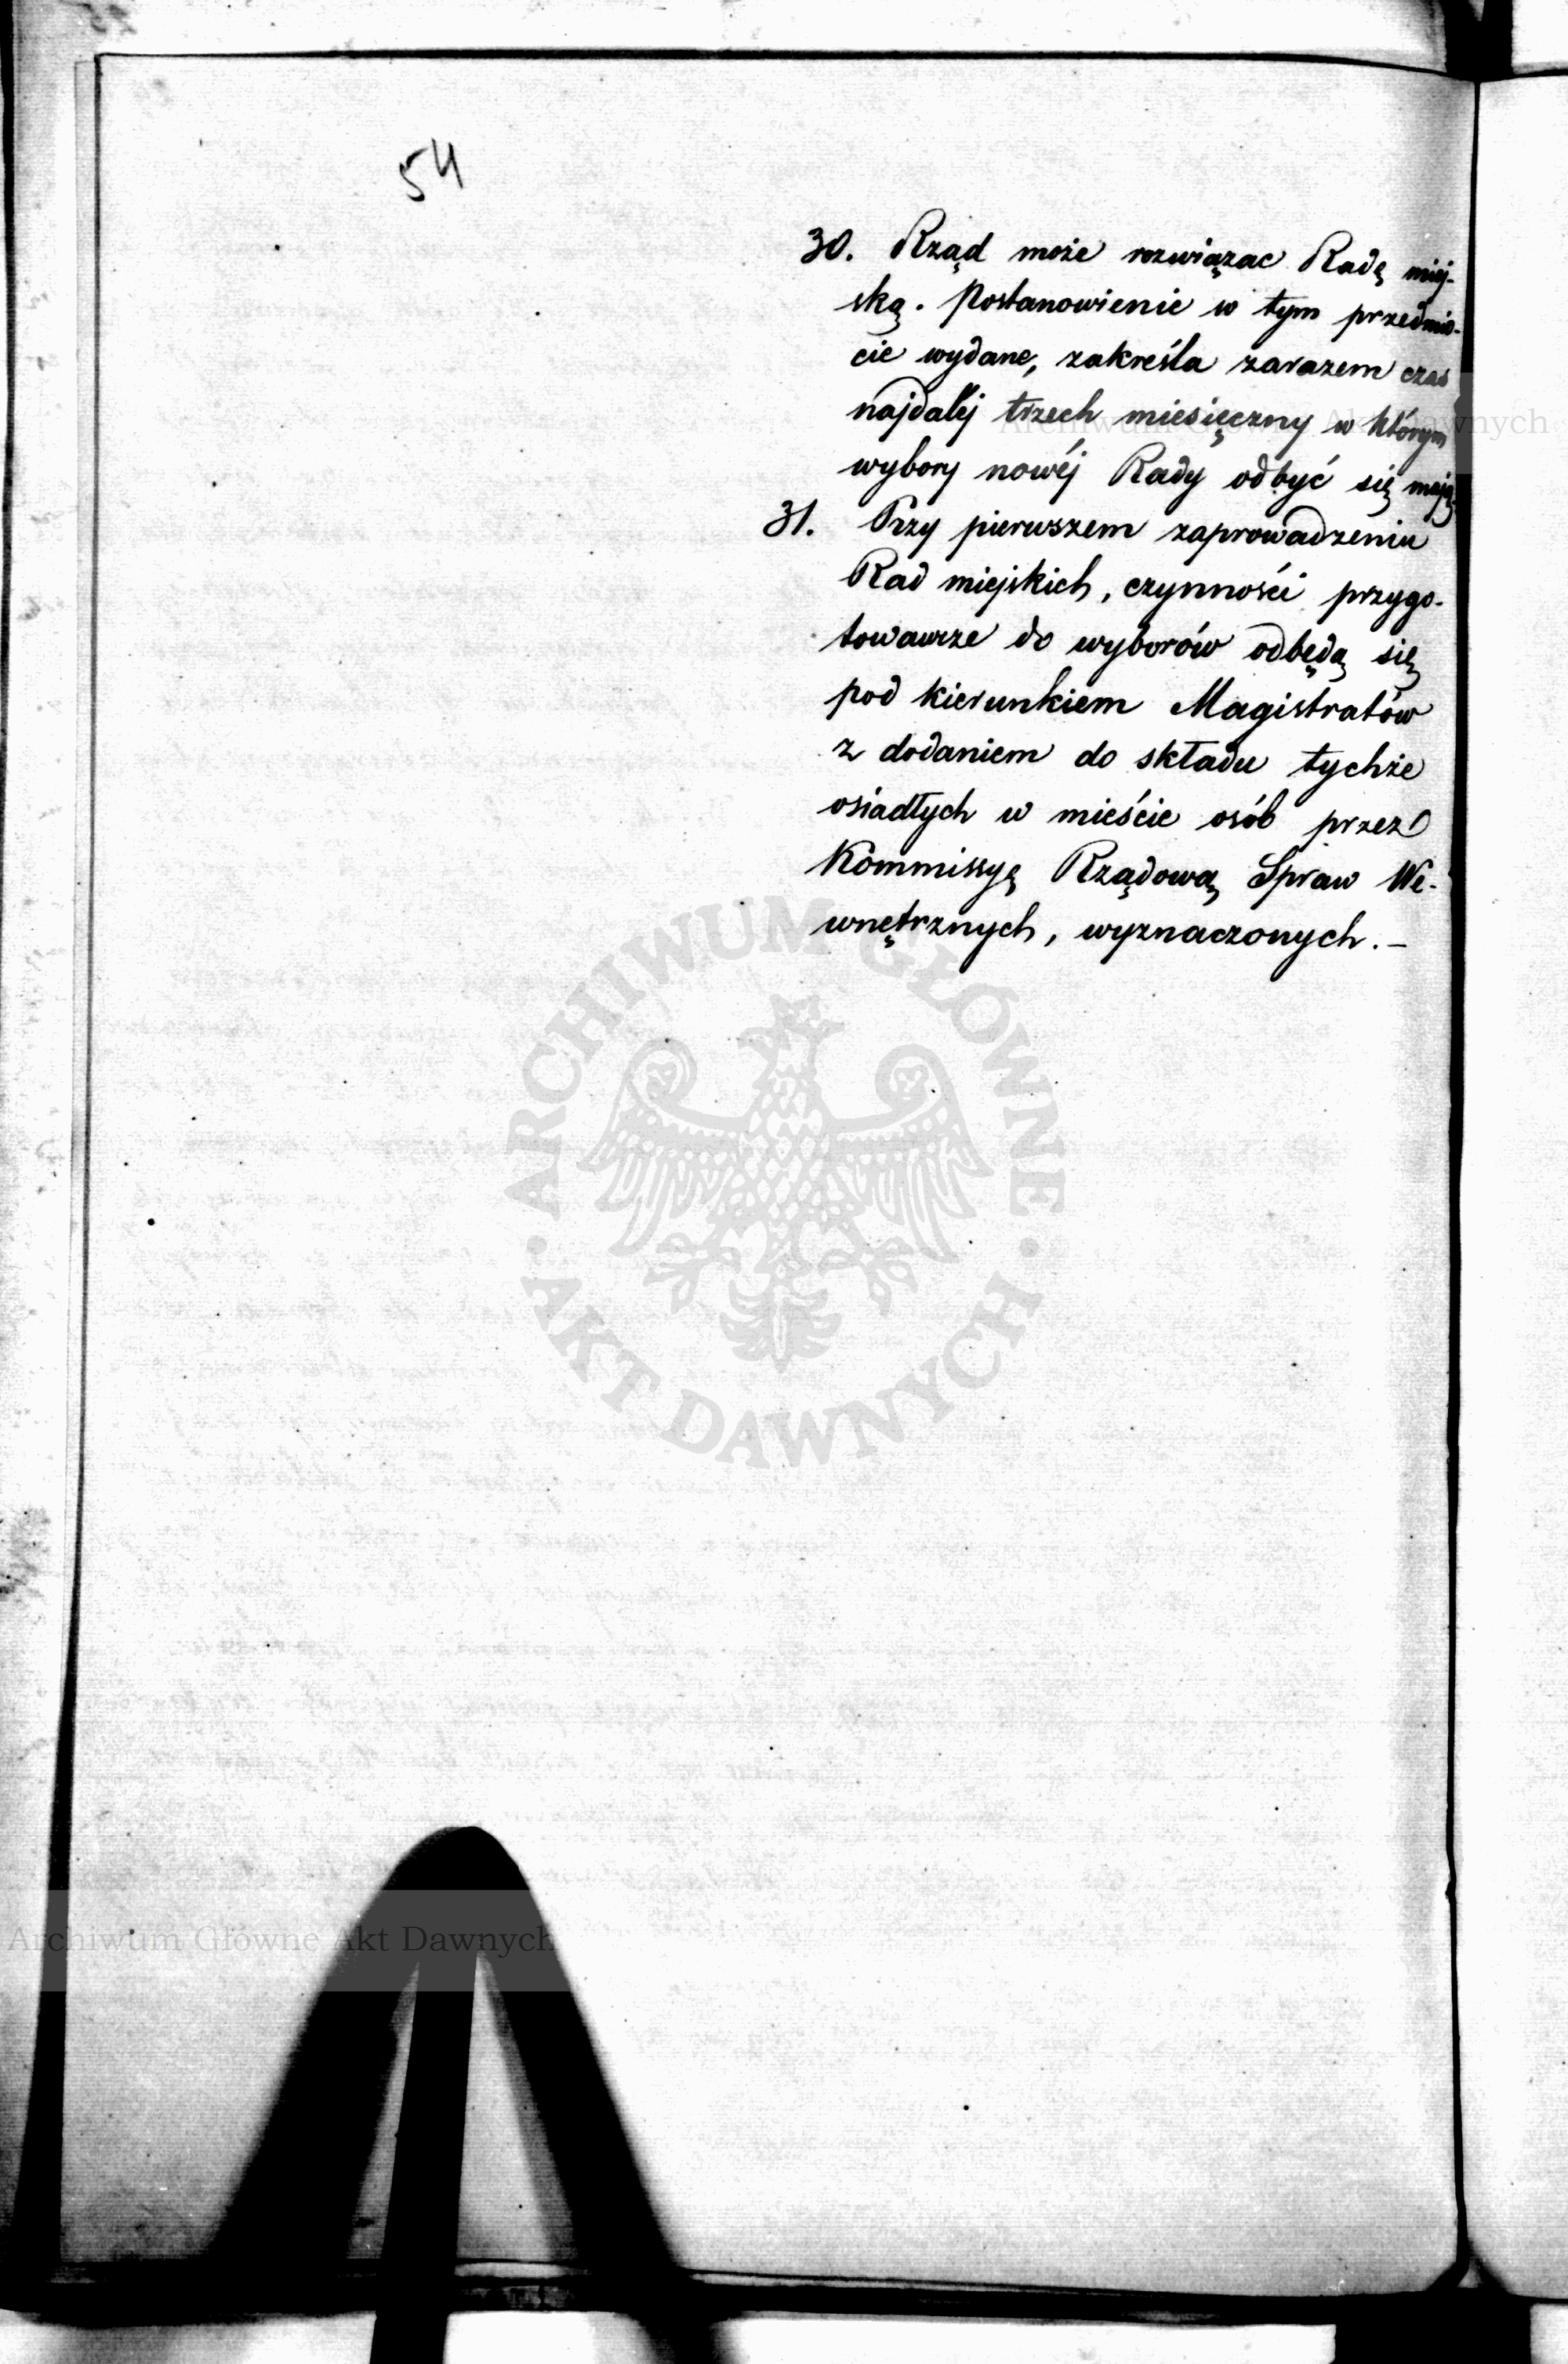 54
30. Rząd może rozwiązac Radę miej-
ską. Postanowienie w tym przedmio-
cie wydane, zakreśla zarazem czas
najdaléj trzech miesięczny w którym
wybory nowéj Rady odbyć się mają
31. Przy pierwszem zaprowadzeniu
Rad miejskich, czynności przygo-
towawcze do wyborów odbędą się
pod kierunkiem Magistratów
z dodaniem do składu tychże
osiadłych w mieście osób przez
Kommissyę Rządową Spraw We-
wnętrznych, wyznaczonych. –
Archiwum Główne Akt Dawnych
ARCHIWUM GŁÓWNE
· AKT DAWNYCH ·
Archiwum Główne Akt Dawnych